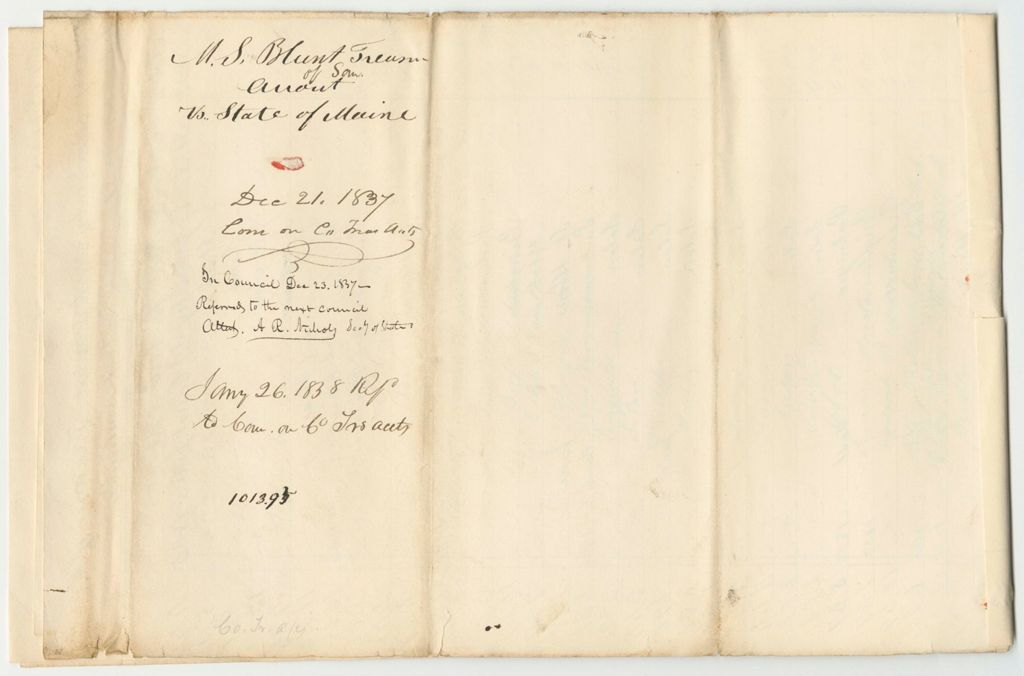 M. S. Blunt Treasr
of Som.
Account
vs. State of Maine
Dec 21. 1837
Com on Co Treas Acts
In Council Dec 23. 1837—
Referred to the next council
Attest, A. R. Nichols Secy of State
Jany 26. 1838 Ref
to Com. on Co Trs accts
1013.95
Co. Tr.